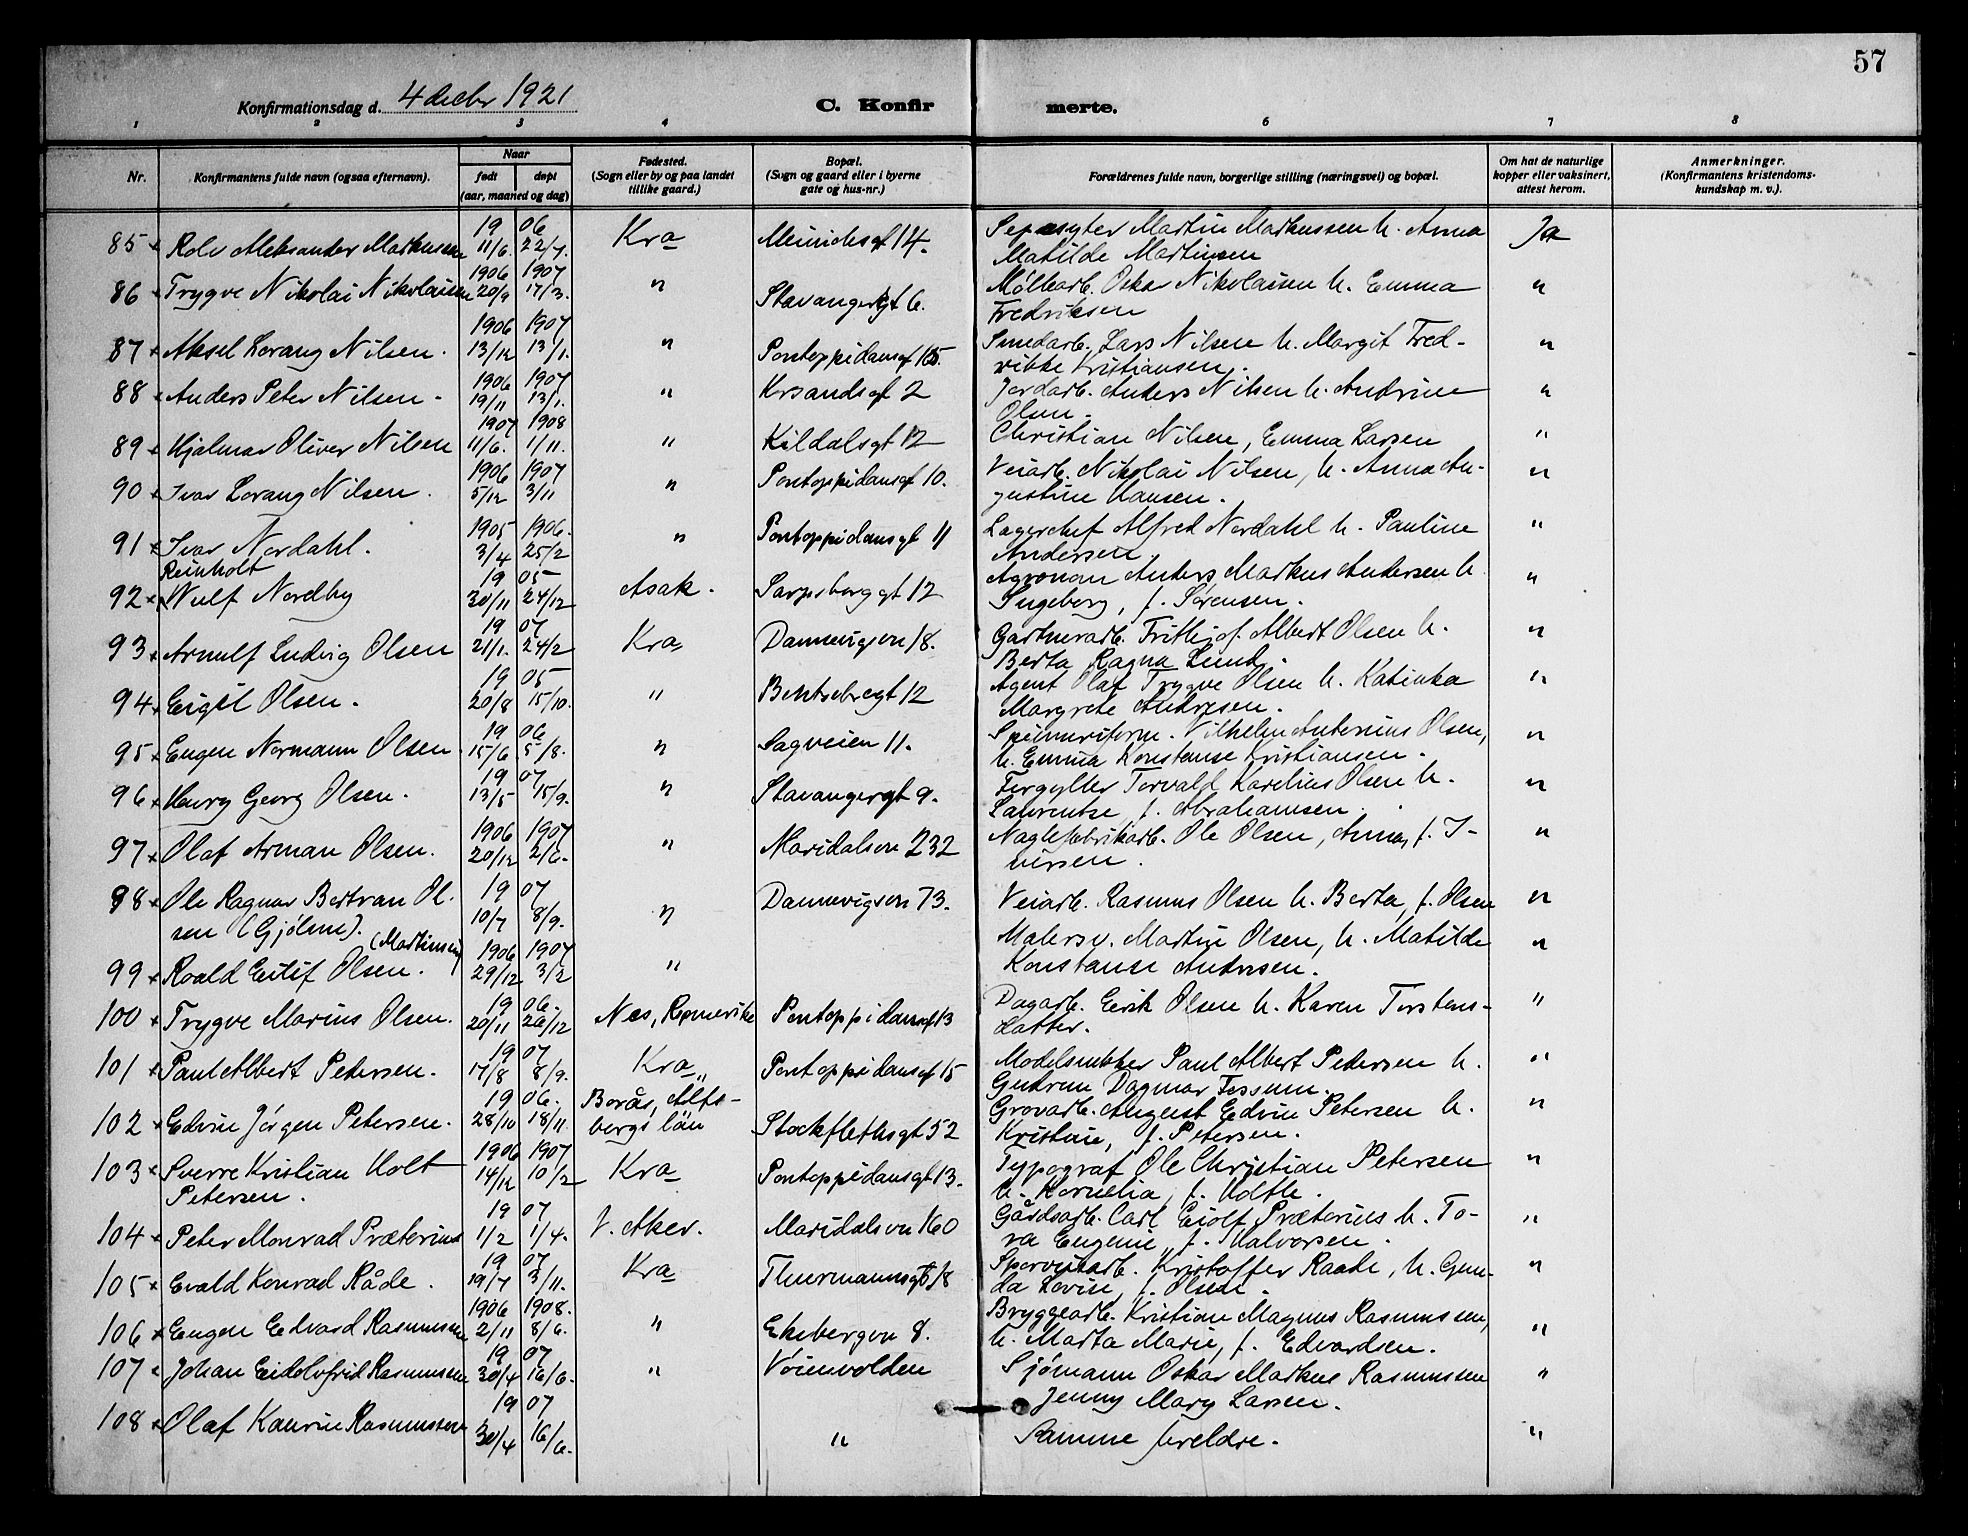 57
Konfirmationsdag d. 4 decbr 1921 C. Konfirmerte.
1 2 3 4 5 6 7 8
Nr. Konfirmantens fulde navn (ogsaa efternavn). Naar født døpt (aar, maaned og dag) Fødested. (Sogn eller by og paa landet tillike gaard.) Bopæl. (Sogn og gaard eller i byerne gate og hus-nr.) Forældrenes fulde navn, borgerlige stilling (næringsvei) og bopæl. Om hat de naturlige kopper eller vaksinert, attest herom. Anmerkninger. (Konfirmantens kristendomskundskap m. v.).
85 Rolv Aleksander Markussen 1906 11/6 22/7. Kra 14. Martin Markussen h. Anna Ja
Matilde Martinsen
86 Trygve Nikolai Nikolaisen 1906 20/9 1907 17/3. " Stavangergt 6. Møllearb. Oskar Nikolaisen h. Emma "
Fredriksen
87 Aksel Lorang Nilsen. 1906 13/12 1907 13/1. " Pontoppidansgt 165. Lars Nilsen h. Margit Fred- "
rikke Kristiansen.
88 Anders Peter Nilsen. 1906 19/11 1907 13/1. " Krsandsgt 2 Jordarb. Anders Nilsen h. Andrine "
Olsen.
89 Hjalmar Oliver Nilsen 1907 11/6. 1908 1/11. " Kildalsgt 12 Christian Nilsen, Emma Larsen "
90 Ivar Lorang Nilsen. 1906 5/12 1907 3/11 " Pontoppidansgt 10. Veiarb. Nikolai Nilsen, h. Anna Au- "
gustine Hansen.
91 Ivar Nordahl. 1905 3/4 1906. 25/2 " Pontoppidansgt 11 Lagerchef Alfred Nordahl h. Pauline "
Andersen.
92 Reinholt Wulf Nordby 1905 30/11 24/12 Asak. Sarpsborggt 12 Agronom Anders Markus Andersen h. "
Ingeborg, f. Sørensen.
93 Arnulf Ludvig Olsen 1907 21/1. 24/2 Kra Dannevigsvn 18. Gartnerarb. Frithjof Albert Olsen h. "
Berta Ragna Lund.
94 Eigil Olsen. 1905 20/8 15/10. " Bentsebrogt 12 Agent Olaf Trygve Olsen h. Katinka "
Margrete Andresen.
95 Eugen Normann Olsen 1906 15/6 5/8. " Sagveien 11. Vilhelm Antonius Olsen, "
h. Emma Konstanse Kristiansen.
96 Henry Georg Olsen. 1907 13/5 15/9. " Stavangergt 9. Torvald Karelius Olsen h. "
Laurentse, f. Abrahamsen.
97 Olaf Arman Olsen. 1906 20/12 1907 2/6. " Maridalsvn 232 Naglefabrikarb. Ole Olsen, Anna, f. I- "
versen.
98 Ole Ragnar Bertran Ol- 1907 10/7 8/9. " Dannevigsvn 73. Veiarb. Rasmus Olsen h. Berta, f. Olsen "
sen (Gjølme).
99 Roald Eilif Olsen. (Martinsen) 1906 29/12 1907 3/2 " Malersv. Martin Olsen, h. Matilde "
Konstanse Andresen.
100 Trygve Marius Olsen. 1906. 20/11 26/12 Nes, Romerike Pontoppidansgt 13 Dagarb. Eirik Olsen h. Karen Torstens- "
datter.
101 Paul Albert Petersen. 1907 17/8 8/9. Kra Pontoppidansgt 15 Modelsnekker Paul Albert Petersen h. "
Gudrun Dagmar Fossum.
102 Edvin Jørgen Petersen. 1906. 28/10 18/11. Borås, Alfs- Stockflethsgt 52 Grovarb. August Edvin Petersen h. "
bergs län Kristine, f. Petersen.
103 Sverre Kristian Holt 1906 14/12 1907 10/2 Kra Pontoppidansgt 13. Typograf Ole Christian Petersen "
Petersen. h. Kornelia, f. Holth.
104 Peter Monrad Præterius 1907 1/2 1/4. V. Aker. Maridalsvn 160 Gårdsarb. Carl Eiolf Præterius h. To- "
ra Eugenie, f. Halvorsen.
105 Evald Konrad Råde. 1907 19/7 3/11. Kra Thurmannsgt 8 Kristoffer Raade, h. Gun- "
da Lovise, f. Olsen.
106 Eugen Edvard Rasmussen 1906 2/11 1908. 8/6. " Ekebergvn 8. Bryggearb. Kristian Magnus Rasmussen, "
h. Marta Marie, f. Edvardsen.
107 Johan Rasmussen 1907 30/4 16/6. " Vøienvolden Sjømann Oskar Markus Rasmussen "
Jenny Mary Larsen.
108 Olaf Kaurin Rasmussen 1907 30/4 16/6. " Samme foreldre. "